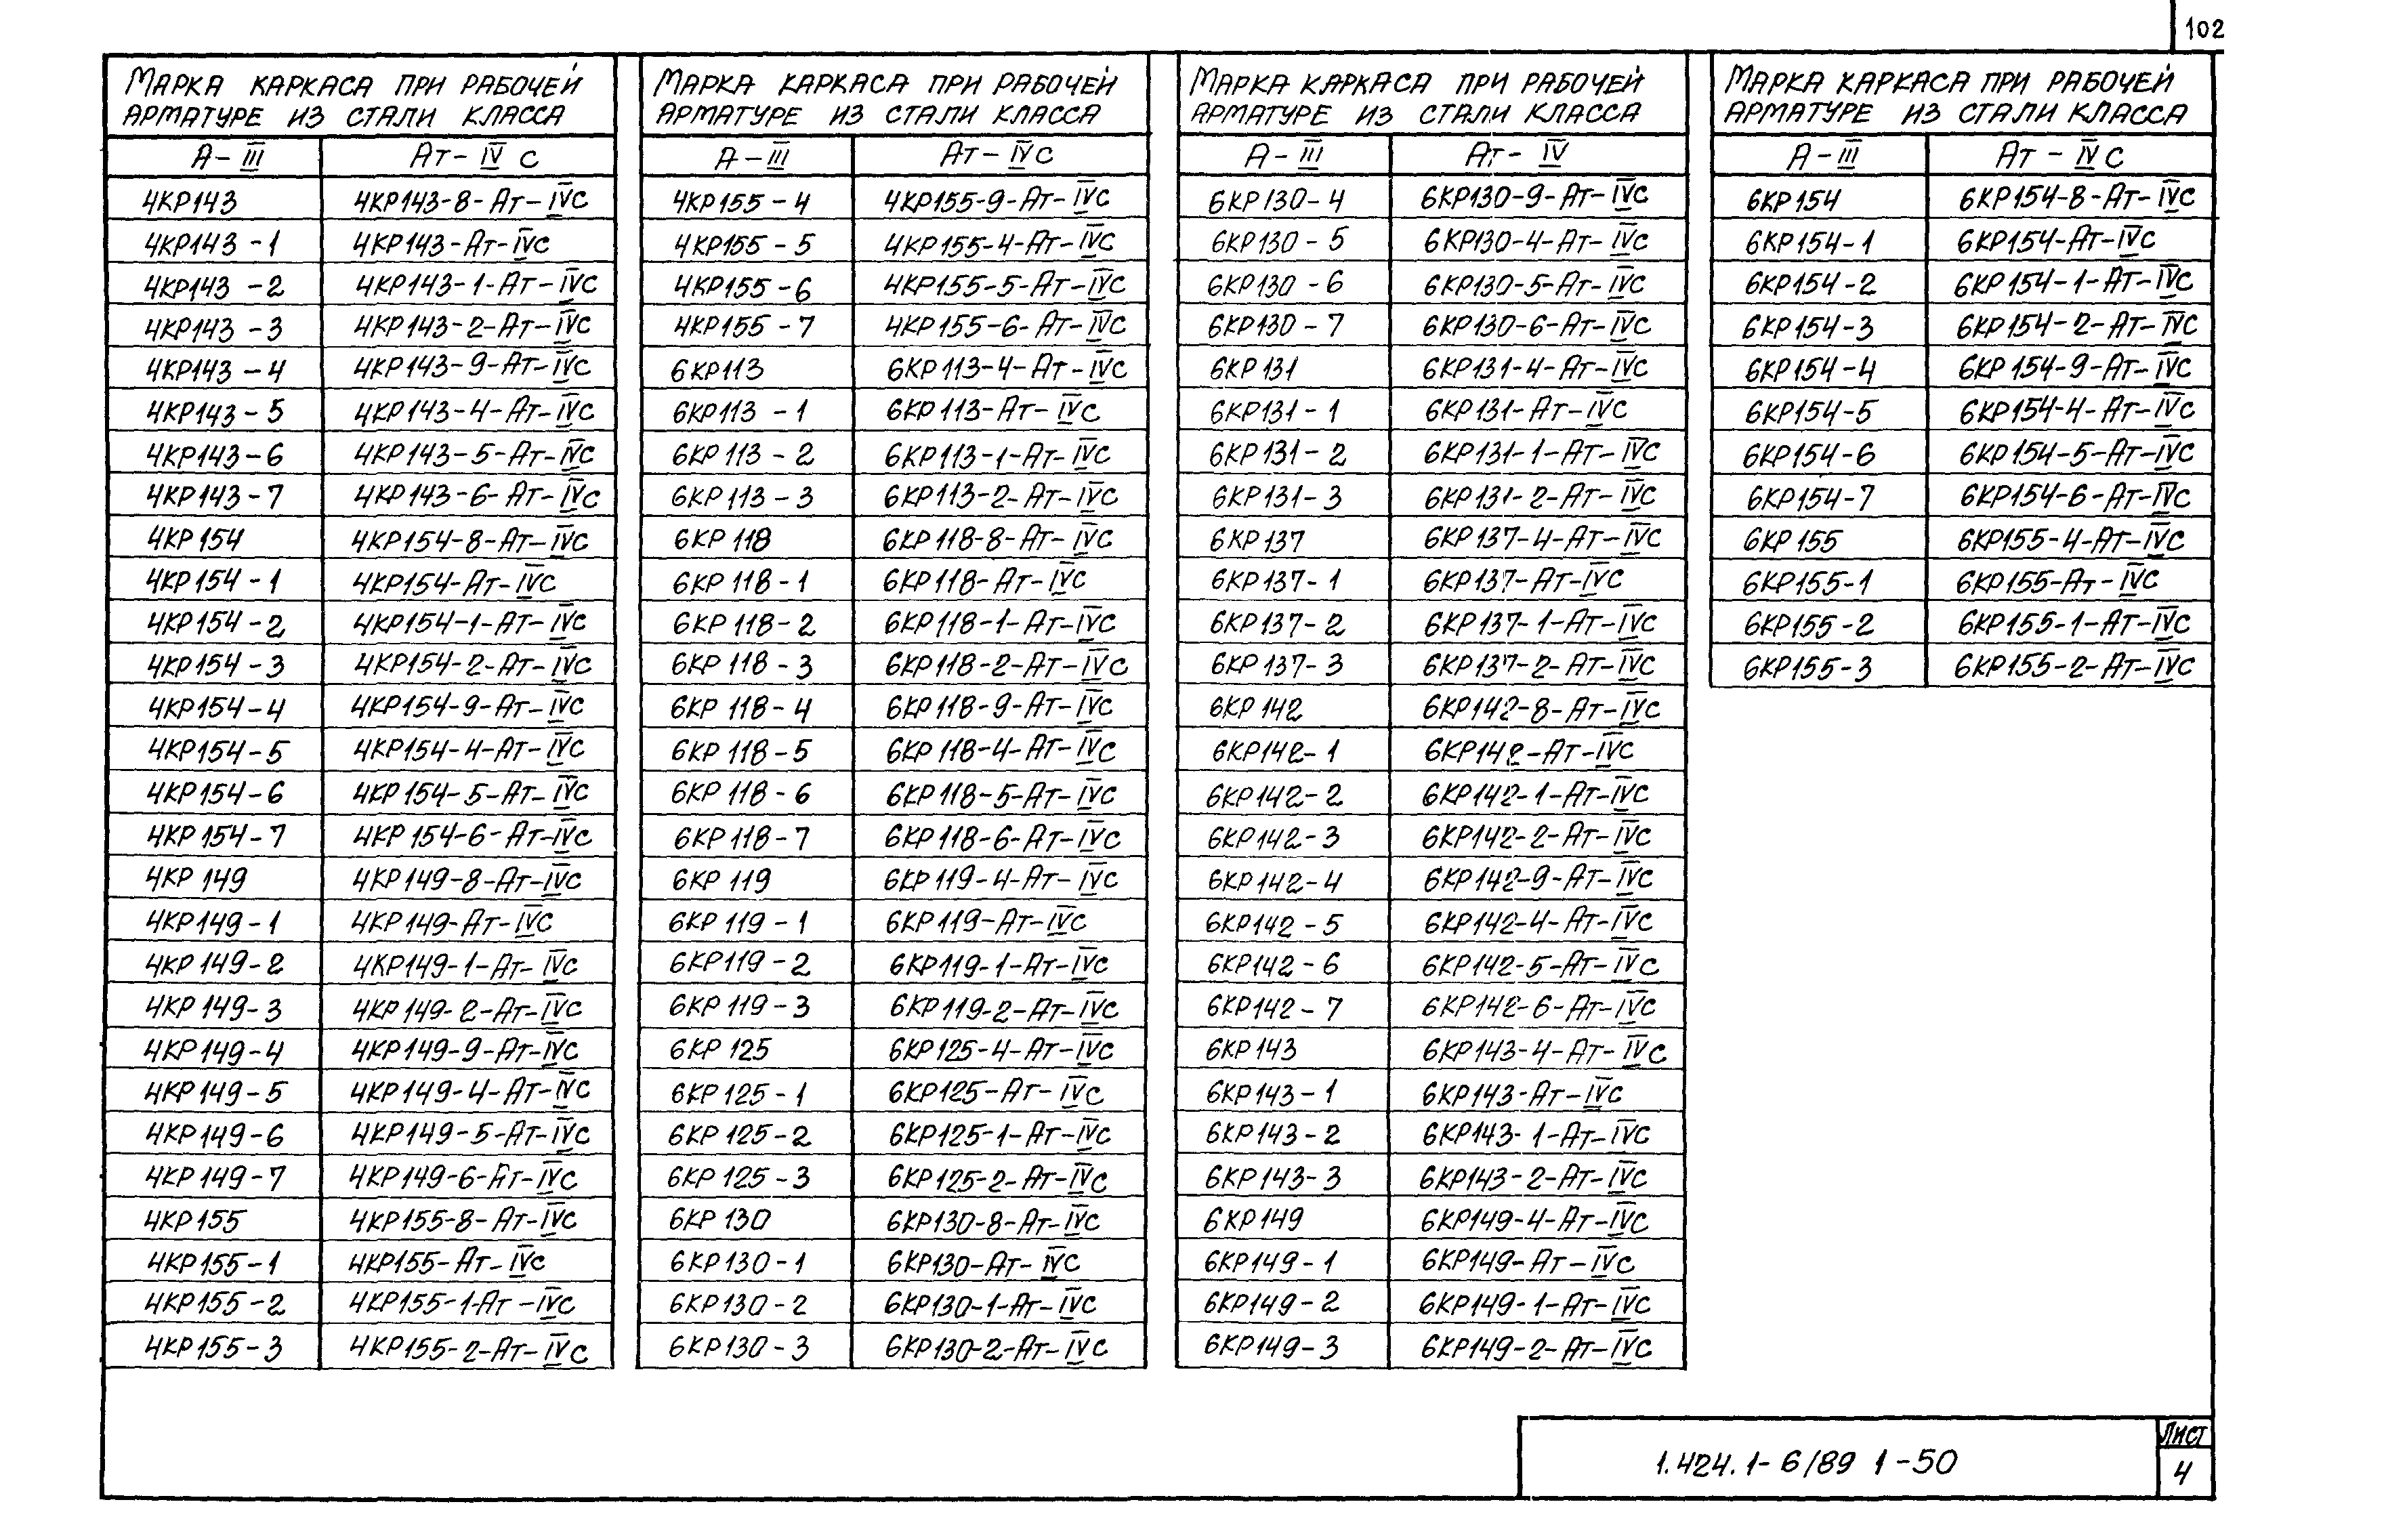 102
МАРКА КАРКАСА ПРИ РАБОЧЕЙ
АРМАТУРЕ ИЗ СТАЛИ КЛАССА
А-III Ат-IV С
4КР143 4КР143-8-Ат-IVС
4КР143-1 4КР143-Ат-IVС
4КР143-2 4КР143-1-Ат-IVС
4КР143-3 4КР143-2-Ат-IVС
4КР143-4 4КР143-9-Ат-IVС
4КР143-5 4КР143-4-Ат-IVС
4КР143-6 4КР143-5-Ат-IVС
4КР143-7 4КР143-6-Ат-IVС
4КР154 4КР154-8-Ат-IVС
4КР154-1 4КР154-Ат-IVС
4КР154-2 4КР154-1-Ат-IVС
4КР154-3 4КР154-2-Ат-IVС
4КР154-4 4КР154-9-Ат-IVС
4КР154-5 4КР154-4-Ат-IVС
4КР154-6 4КР154-5-Ат-IVС
4КР154-7 4КР154-6-Ат-IVС
4КР149 4КР149-8-Ат-IVС
4КР149-1 4КР149-Ат-IVС
4КР149-2 4КР149-1-Ат-IVС
4КР149-3 4КР149-2-Ат-IVС
4КР149-4 4КР149-9-Ат-IVС
4КР149-5 4КР149-4-Ат-IVС
4КР149-6 4КР149-5-Ат-IVС
4КР149-7 4КР149-6-Ат-IVС
4КР155 4КР155-8-Ат-IVС
4КР155-1 4КР155-Ат-IVС
4КР155-2 4КР155-1-Ат-IVС
4КР155-3 4КР155-2-Ат-IVС
МАРКА КАРКАСА ПРИ РАБОЧЕЙ
АРМАТУРЕ ИЗ СТАЛИ КЛАССА
А-III Ат-IVС
4КР155-4 4КР155-9-Ат-IVС
4КР155-5 4КР155-4-Ат-IVС
4КР155-6 4КР155-5-Ат-IVС
4КР155-7 4КР155-6-Ат-IVС
6КР113 6КР113-4-Ат-IVС
6КР113-1 6КР113-Ат-IVС
6КР113-2 6КР113-1-Ат-IVС
6КР113-3 6КР113-2-Ат-IVС
6КР118 6КР118-8-Ат-IVС
6КР118-1 6КР118-Ат-IVС
6КР118-2 6КР118-1-Ат-IVС
6КР118-3 6КР118-2-Ат-IVС
6КР118-4 6КР118-9-Ат-IVС
6КР118-5 6КР118-4-Ат-IVС
6КР118-6 6КР118-5-Ат-IVС
6КР118-7 6КР118-6-Ат-IVС
6КР119 6КР119-4-Ат-IVС
6КР119-1 6КР119-Ат-IVС
6КР119-2 6КР119-1-Ат-IVС
6КР119-3 6КР119-2-Ат-IVС
6КР125 6КР125-4-Ат-IVС
6КР125-1 6КР125-Ат-IVС
6КР125-2 6КР125-1-Ат-IVС
6КР125-3 6КР125-2-Ат-IVС
6КР130 6КР130-8-Ат-IVС
6КР130-1 6КР130-Ат-IVС
6КР130-2 6КР130-1-Ат-IVС
6КР130-3 6КР130-2-Ат-IVС
МАРКА КАРКАСА ПРИ РАБОЧЕЙ
АРМАТУРЕ ИЗ СТАЛИ КЛАССА
А-III Ат-IV
6КР130-4 6КР130-9-Ат-IVС
6КР130-5 6КР130-4-Ат-IVС
6КР130-6 6КР130-5-Ат-IVС
6КР130-7 6КР130-6-Ат-IVС
6КР131 6КР131-4-Ат-IVС
6КР131-1 6КР131-Ат-IVС
6КР131-2 6КР131-1-Ат-IVС
6КР131-3 6КР131-2-Ат-IVС
6КР137 6КР137-4-Ат-IVС
6КР137-1 6КР137-Ат-IVС
6КР137-2 6КР137-1-Ат-IVС
6КР137-3 6КР137-2-Ат-IVС
6КР142 6КР142-8-Ат-IVС
6КР142-1 6КР142-Ат-IVС
6КР142-2 6КР142-1-Ат-IVС
6КР142-3 6КР142-2-Ат-IVС
6КР142-4 6КР142-9-Ат-IVС
6КР142-5 6КР142-4-Ат-IVС
6КР142-6 6КР142-5-Ат-IVС
6КР142-7 6КР142-6-Ат-IVС
6КР143 6КР143-4-Ат-IVС
6КР143-1 6КР143-Ат-IVС
6КР143-2 6КР143-1-Ат-IVС
6КР143-3 6КР143-2-Ат-IVС
6КР149 6КР149-4-Ат-IVС
6КР149-1 6КР149-Ат-IVС
6КР149-2 6КР149-1-Ат-IVС
6КР149-3 6КР149-2-Ат-IVС
МАРКА КАРКАСА ПРИ РАБОЧЕЙ
АРМАТУРЕ ИЗ СТАЛИ КЛАССА
А-III Ат-IVС
6КР154 6КР154-8-Ат-IVС
6КР154-1 6КР154-Ат-IVС
6КР154-2 6КР154-1-Ат-IVС
6КР154-3 6КР154-2-Ат-IVС
6КР154-4 6КР154-9-Ат-IVС
6КР154-5 6КР154-4-Ат-IVС
6КР154-6 6КР154-5-Ат-IVС
6КР154-7 6КР154-6-Ат-IVС
6КР155 6КР155-4-Ат-IVС
6КР155-1 6КР155-Ат-IVС
6КР155-2 6КР155-1-Ат-IVС
6КР155-3 6КР155-2-Ат-IVС
1.424.1-6/89 1-50
Лист
4